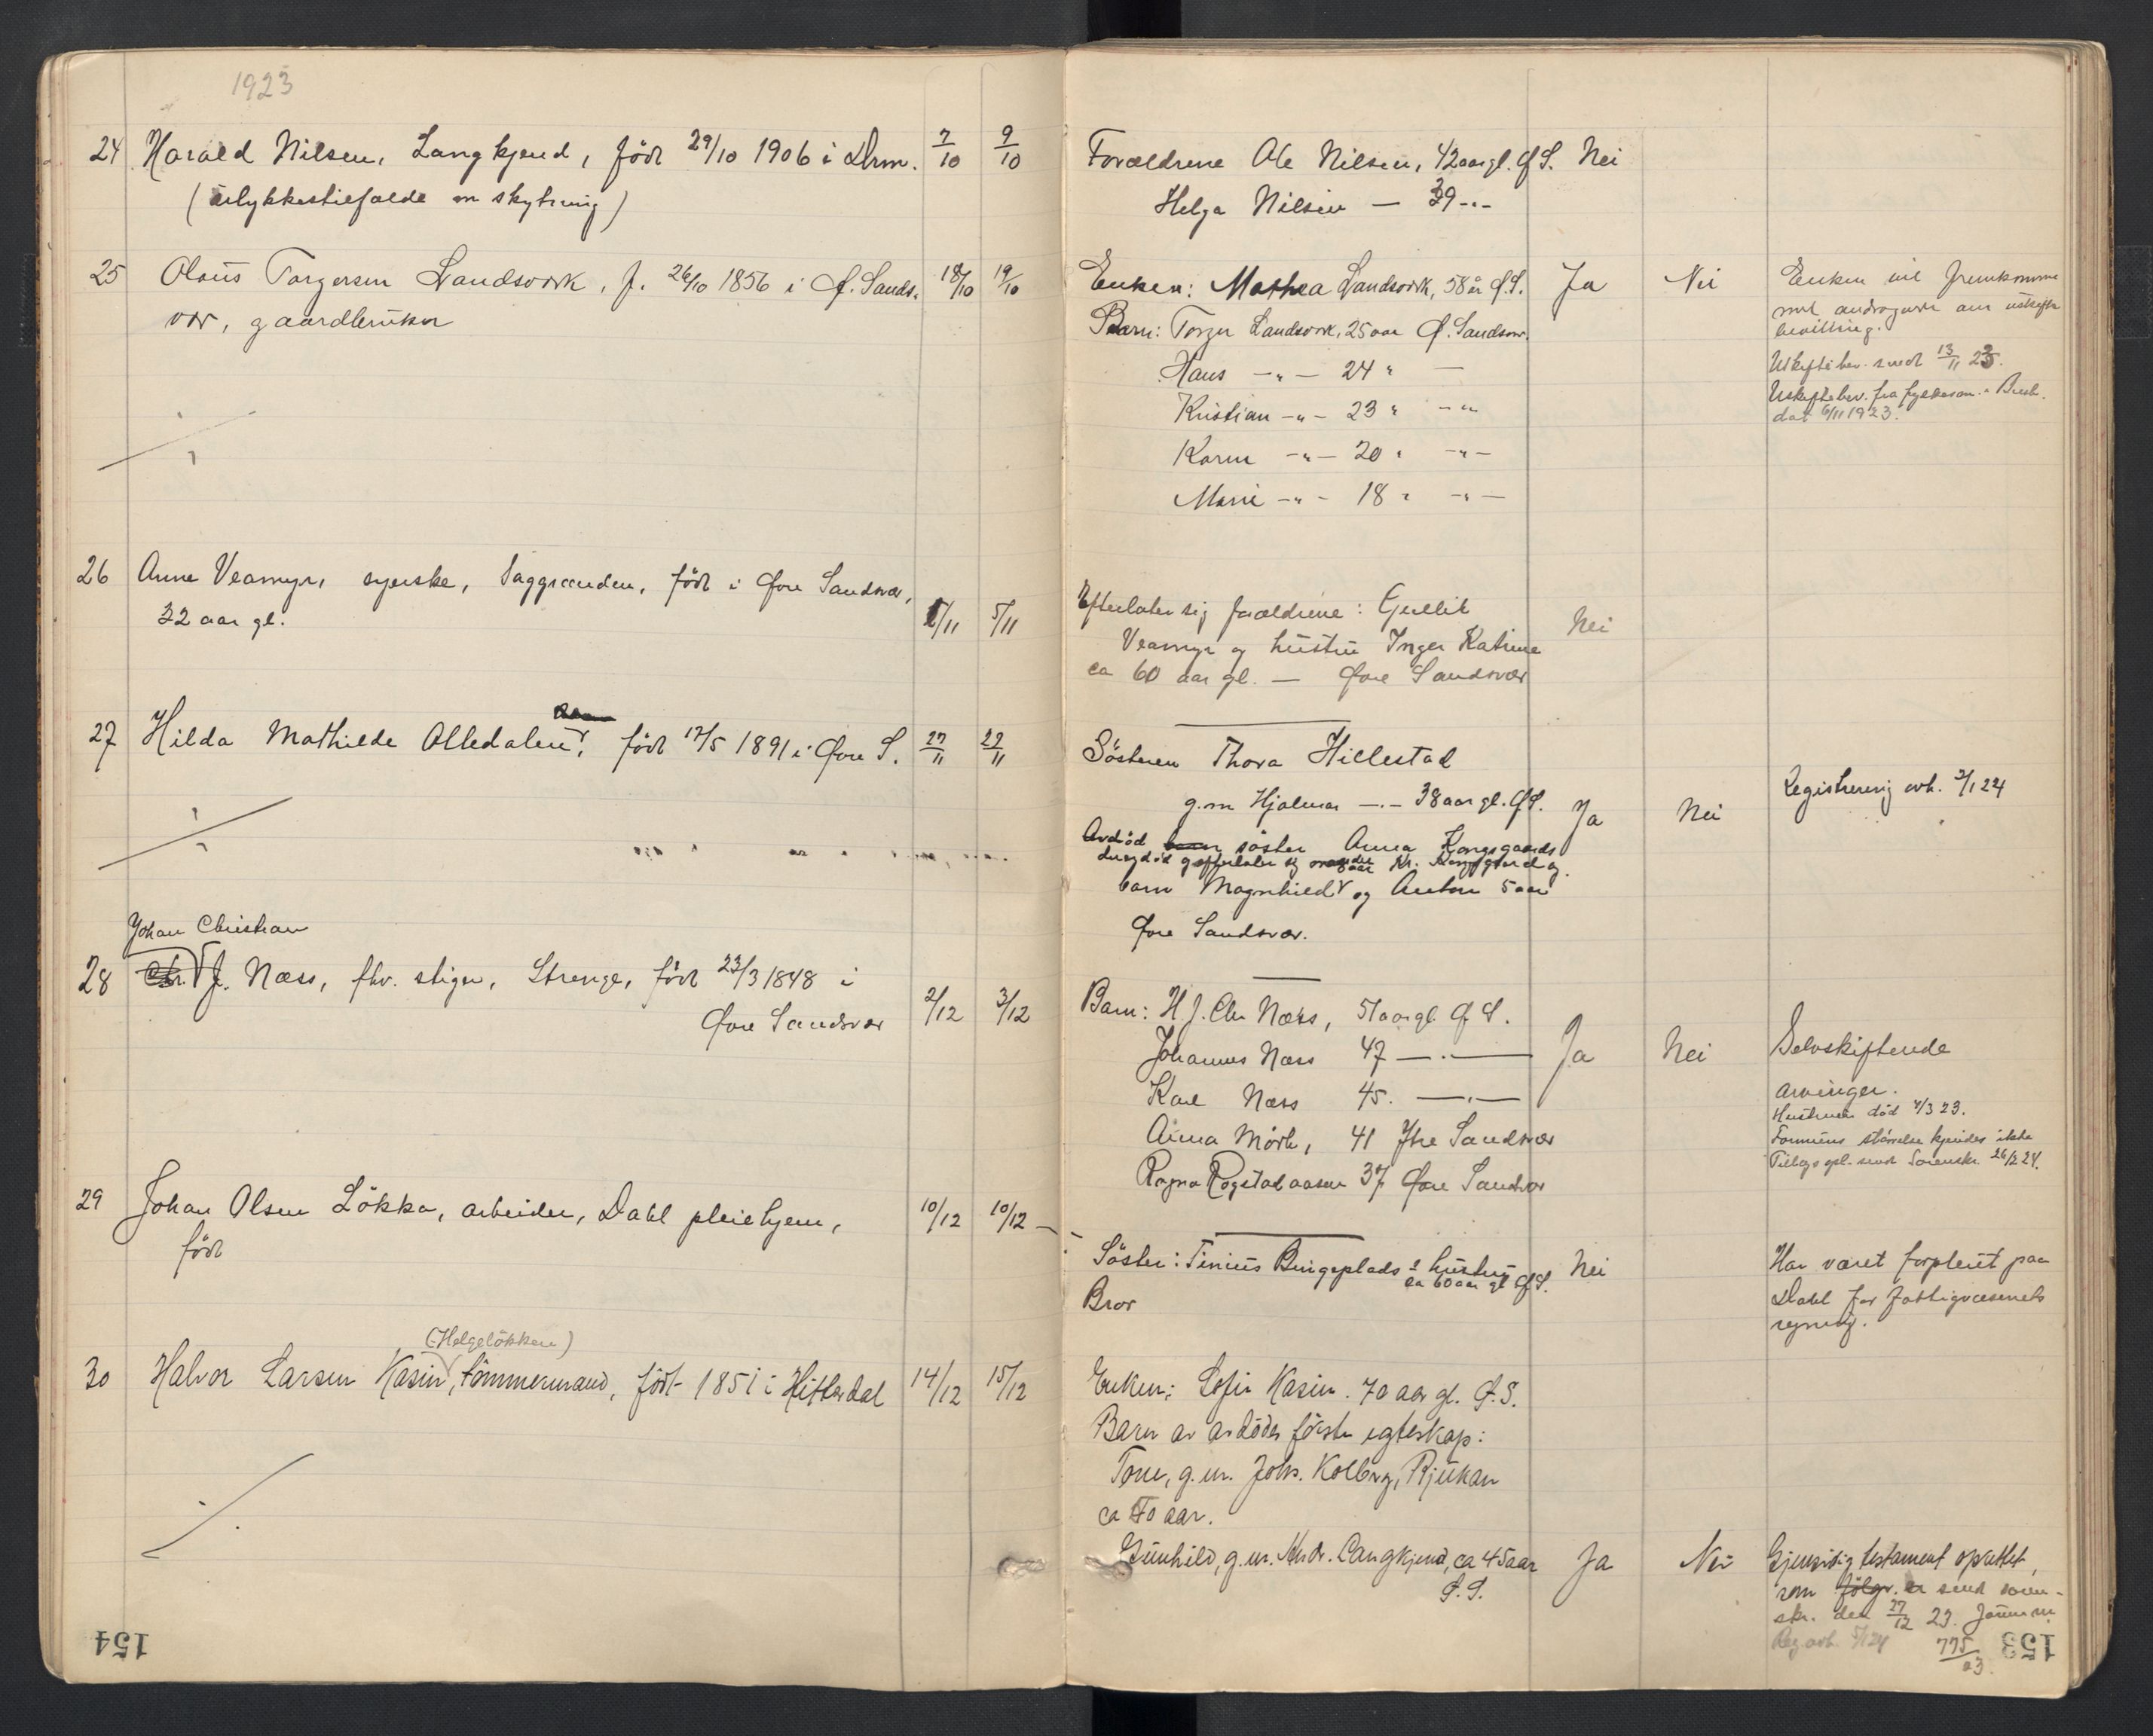 1923
24 Harald Nilsen, Langkjend, födt 29/10 1906 i Drm. 7/10 9/10
(ulykkestilfælde m skytning)
25 Olaus Torgersen Landsverk, f. 26/10 1856 i Ø. Sands- 18/10 19/10
vær, gaardbruker
26 Anne Veamyr, syerske, Saggrenden, födt i Øvre Sandsvær,
32 aar gl. 1/11 5/11
27 Hilda Mathilde Alledalen, födt 17/5 1891 i Øvre S. 22/11
Johan Christian
28 Chr. J. Næss, fhv. stiger, Strenge, födt 23/3 1848 i
Øvre Sandsvær 2/12 3/12
29 Johan Olsen Lökka, arbeider, Dahl pleiehjem, 10/12 10/12
födt
(Helgelökken)
30 Halvor Larsen Kasin, tömmermand, födt 1851 i Hitterdal 14/12 15/12
154
Forældrene Ole Nilsen, 42 aar gl. Ø S. Nei
Helga Nilsen — 39 -"-
Enken: Mathea Landsverk, 58 år Ø.S. Ja Nei Enken vil fremkomme
Barn: Torger Landsverk, 25 aar Ø. Sandsvær. med andragende om uskifte
bevilling.
Hans -"- 24 " — Uskiftebev. sendt 13/11 23.
Kristian -"- 23 " -"- Uskiftebev. fra fylkesm. i Busk.
dat 6/11 1923.
Karen -"- 20 " -"-
Marie -"- 18 " -"-
Efterlater sig forældrene: Gullik
Veamyr og hustru Inger Katrine Nei
ca 60 aar gl. — Øvre Sandsvær
Søsteren Thora Hillestad
g.m Hjalmar -"- 38 aar gl. Ø S. Ja Nei Registrering avh. 3/1 24
Avdöd söster Anna Kongsgaards
efterlater sig Kr. Kongsgaard og
barn Magnhild og Anton 5 aar
Øvre Sandsvær.
Barn: H J. Chr Næss, 51 aar gl. Ø S.
Johannes Næss 47 -"- Ja Nei Selvskiftende
Karl Næss 45. -"- arvinger.
Hustruen död 4/3 23.
Anna Mörk, 41 Ytre Sandsvær Formuens störrelse kjendes ikke
Ragna Rogstadaasen 37 Øvre Sandsvær Tillægsopl. sendt Sorenskr. 26/2 24.
Söster: Tinius Bingeplads's hustru Nei Har været forpleiet paa
ca 60 aar gl Ø S.
Bror Dahl for fattigvæsenets
regning.
Enken: Sofie Kasin. 70 aar gl. Ø.S.
Barn av avdödes förste egteskap:
Tone, g.m. Johs. Kolberg, Rjukan
ca 50 aar.
Gunhild, g.m. Andr. Langkjend, ca 45 aar Ja Nei Gjensidig testament oprettet,
Ø.S. som fölger er sendt soren-
skr. den 27/12 23. Jour nr
Reg avh. 5/1 24 775/23.
153